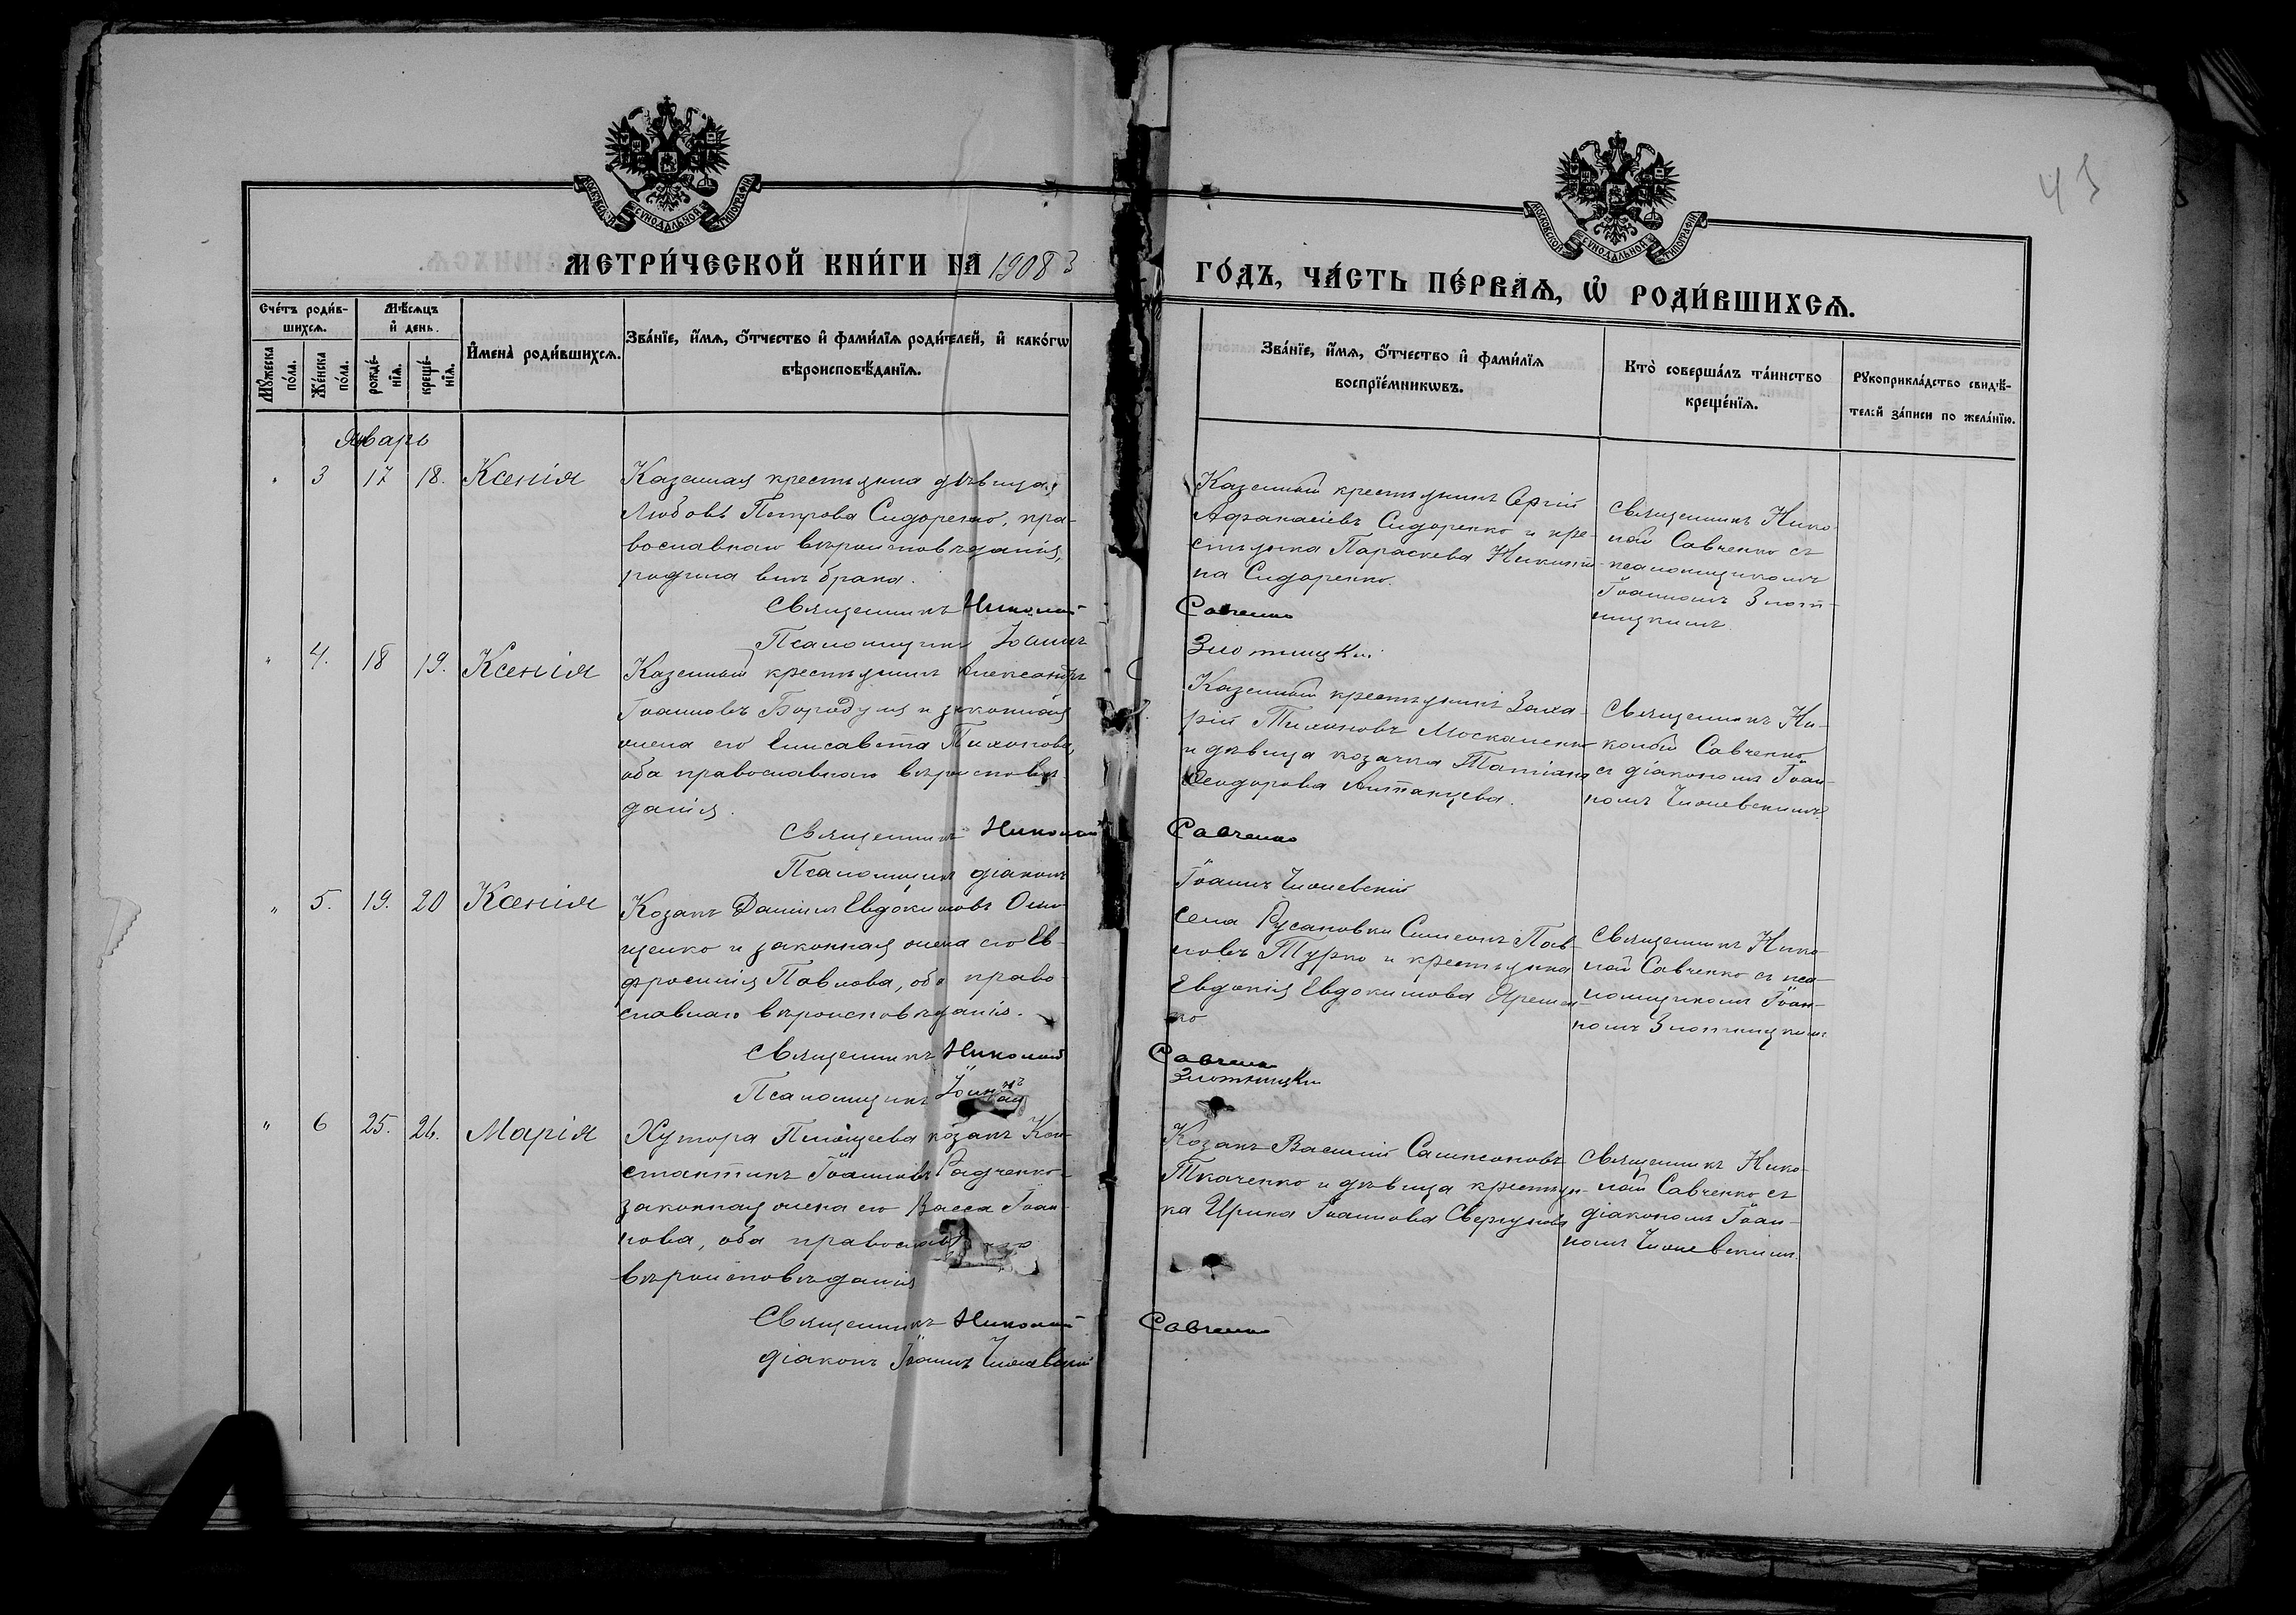 МОСКОВСКОЙ СѴНОДАЛЬНОЙ ТИПОГРАФІИ
МОСКОВСКОЙ СѴНОДАЛЬНОЙ ТИПОГРАФІИ
43
МЕТРИ́ЧЕСКОЙ КНИ́ГИ НА 1908
ГО́ДЪ, ЧА́СТЬ ПЕ́РВАѦ, Ѡ҆ РОДИ́ВШИХСѦ.
Сче́тъ роди́в-
шихсѧ.
Мꙋ́жеска по́ла.
Же́нска по́ла.
Мѣ́сѧцъ
и҆ день.
рожде́-
нїѧ.
креще́-
нїѧ.
И҆мена̀ роди́вшихсѧ.
Зва́нїе, и҆́мѧ, ѻ҆́тчество и҆ фами́лїѧ роди́телей, и҆ како́гѡ
вѣроисповѣ́данїѧ.
Зва́нїе, и҆́мѧ, ѻ҆́тчество и҆ фами́лїѧ
воспрїе́мникѡвъ.
Кто̀ соверша́лъ та́инство
креще́нїѧ.
Рꙋкоприкла́дство свидѣ́-
телей за́писи по жела́нїю.
Январь
" 3 17 18. Ксенія
Казенная крестьянка дѣвица
Любовь Петрова Сидоренко, пра-
вославнаго вѣроисповѣданія,
родила внѣ брака.
Священникъ Николай
Псаломщикъ Іоаннъ
Казенный крестьянинъ Сергій
Афанасіевъ Сидоренко и кре-
стьянка Параскева Никити-
на Сидоренко.
Савченко
Злотницкій
Священникъ Нико-
лай Савченко съ
псаломщикомъ
Іоанномъ Злот-
ницкимъ.
" 4. 18 19. Ксенія
Казенный крестьянинъ Александръ
Іоанновъ Бородуля и законная
жена его Елисавета Тихонова,
оба православнаго вѣроисповѣ-
данія.
Священникъ Николай
Псаломщикъ діаконъ
Казенный крестьянинъ Заха-
рій Тихоновъ Москаленко
и дѣвица козачка Татіана
Ѳеодорова
Савченко
Іоаннъ
Священникъ Ни-
колай Савченко
съ діакономъ Іоан-
номъ
" 5. 19. 20 Ксенія
Козакъ Даніилъ Евдокимовъ
и законная жена его Ев-
фросинія Павлова, оба право-
славнаго вѣроисповѣданія.
Священникъ Николай
Псаломщикъ Іоаннъ
Села Русановки Симеонъ Пав-
ловъ Турко и крестьянка
Евдокія Евдокимова Яремен-
ко
Савченко
Злотницкій
Священникъ Нико-
лай Савченко съ пса-
ломщикомъ Іоан-
номъ Злотницкимъ
" 6 25. 26. Марія
Хутора козакъ Кон-
стантинъ Іоанновъ Радченко
законная жена его Васса Іоан-
нова, оба православнаго
вѣроисповѣданія
Священникъ Николай
діаконъ Іоаннъ
Козакъ Василій Сампсоновъ
Ткаченко и дѣвица крестьян-
ка Ирина Іоаннова
Савченко
Священникъ Нико-
лай Савченко съ
діакономъ Іоан-
номъ